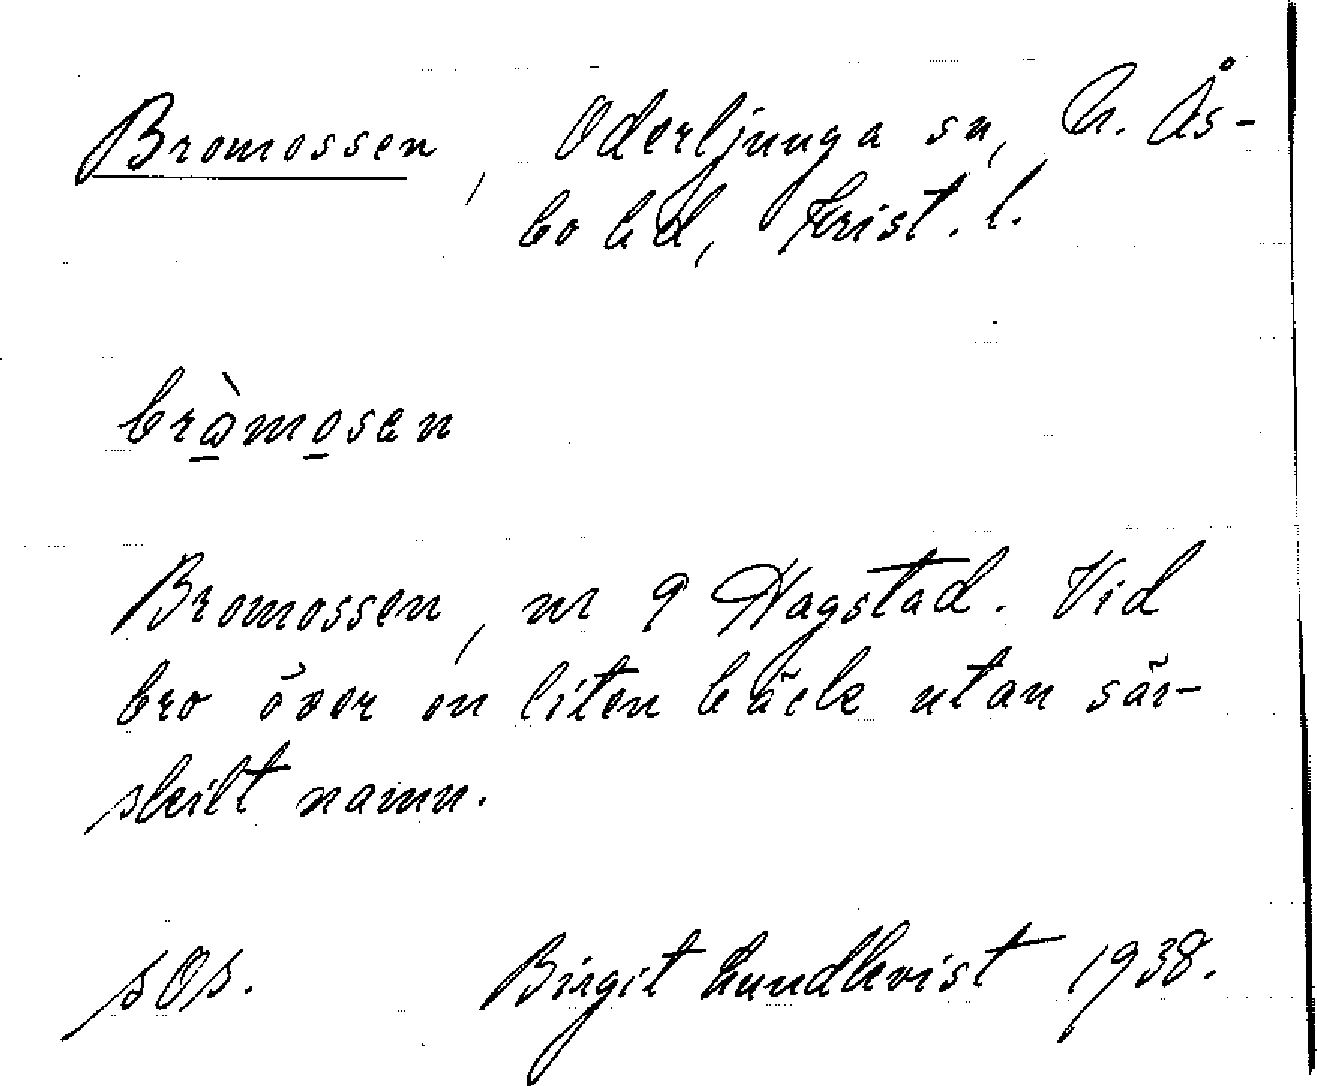 Bromossen, Oderljunga sn, N. Ås-
bo hd, Krist. l.
bròmosen
Bromossen, nr 9 Hagstad. Vid
bro över en liten bäck utan sär-
skilt namn.
sOs. Birgit Lundkvist 1938.